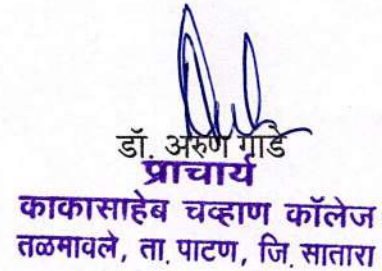 डॉ. अरुण गाडे
प्राचार्य
काकासाहेब चव्हाण कॉलेज
तळमावले, ता. पाटण, जि. सातारा